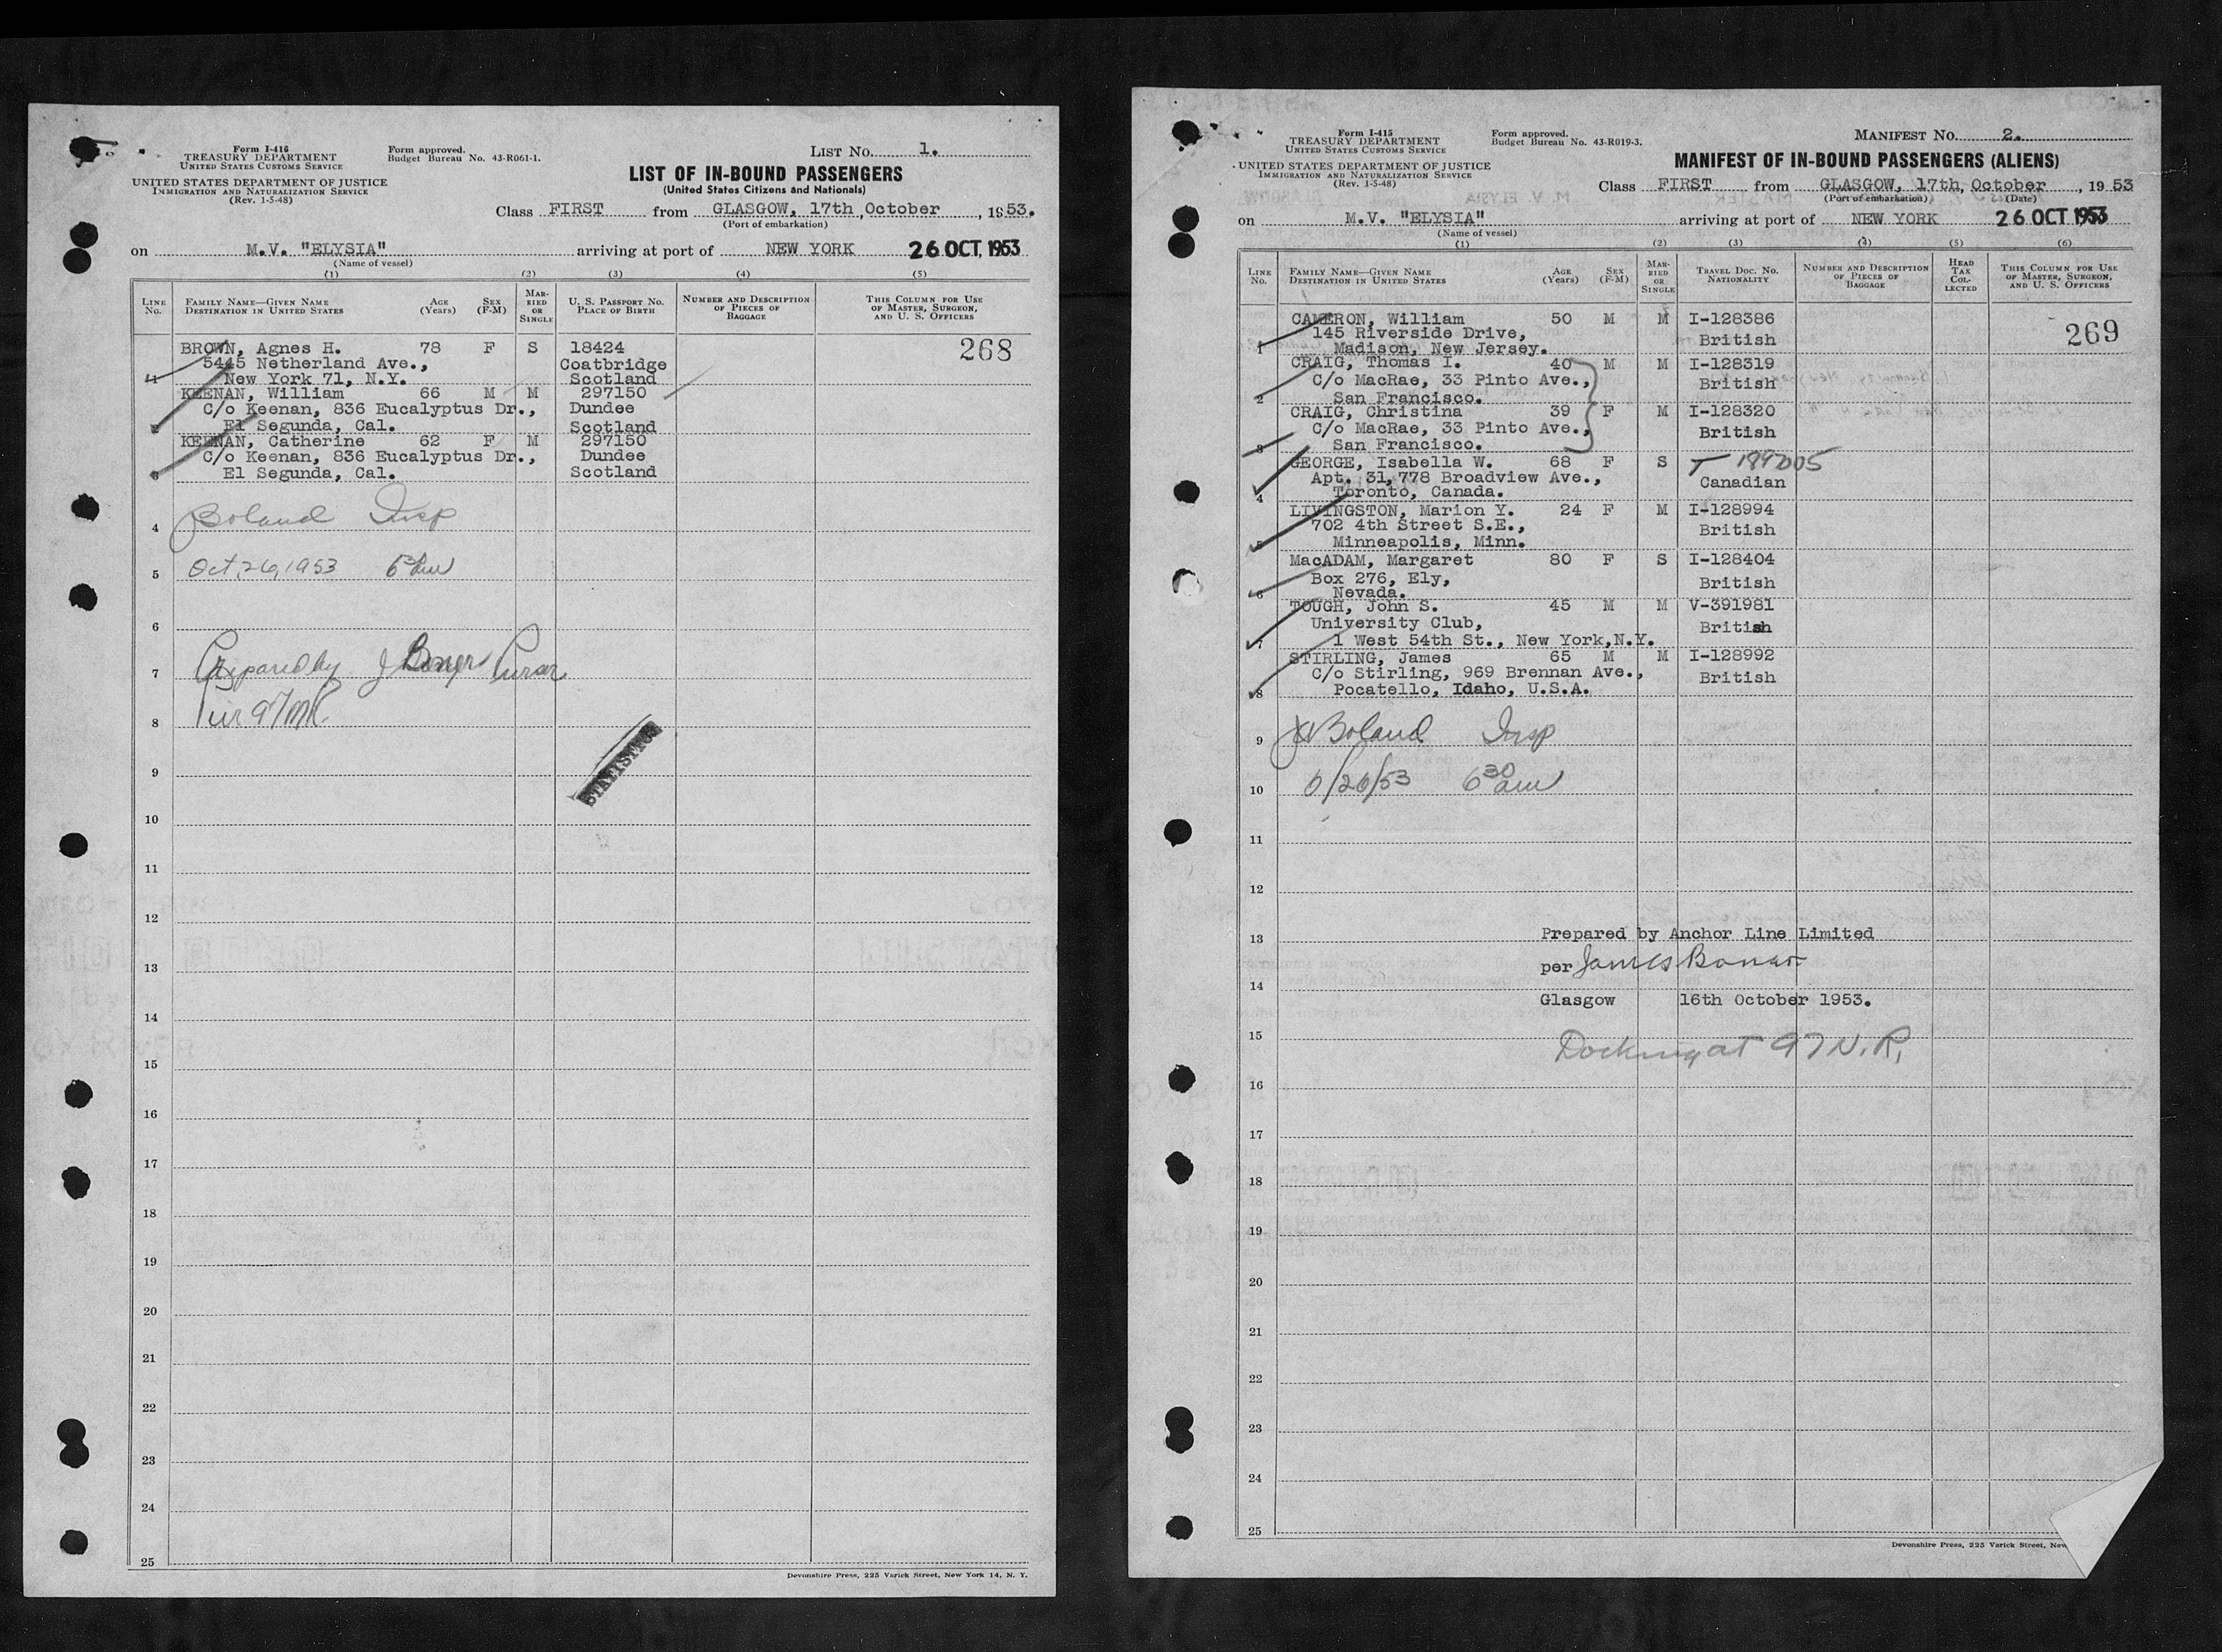 Form I-416
TREASURY DEPARTMENT
UNITED STATES CUSTOMS SERVICE
Form approved.
Budget Bureau No. 43-R061-1.
LIST NO. 1.
UNITED STATES DEPARTMENT OF JUSTICE
IMMIGRATION AND NATURALIZATION SERVICE
(Rev. 1-5-48)
LIST OF IN-BOUND PASSENGERS
(United States Citizens and Nationals)
Class FIRST from GLASGOW, 17th, October, 1953.
(Port of embarkation)
on M.V. "ELYSIA" arriving at port of NEW YORK 26 OCT. 1953
(Name of vessel)
(1) (2) (3) (4) (5)
LINE NO. FAMILY NAME—GIVEN NAME DESTINATION IN UNITED STATES AGE (Years) SEX (F-M) MARRIED OR SINGLE U. S. PASSPORT NO. PLACE OF BIRTH NUMBER AND DESCRIPTION OF PIECES OF BAGGAGE THIS COLUMN FOR USE OF MASTER, SURGEON, AND U. S. OFFICERS
268
BROWN, Agnes H. 78 F S 18424
5445 Netherland Ave., Coatbridge
1 New York 71, N.Y. Scotland
KEENAN, William 66 M M 297150
C/o Keenan, 836 Eucalyptus Dr., Dundee
2 El Segunda, Cal. Scotland
KEENAN, Catherine 62 F M 297150
C/o Keenan, 836 Eucalyptus Dr., Dundee
3 El Segunda, Cal. Scotland
4 Boland Insp
5 Oct, 26, 1953
6
7 Prepared by J Bonar Purser
8 Pier 97
STATISTICS
9
10
11
12
13
14
15
16
17
18
19
20
21
22
23
24
25
Devonshire Press, 225 Varick Street, New York 14, N. Y.
Form I-415
TREASURY DEPARTMENT
UNITED STATES CUSTOMS SERVICE
Form approved.
Budget Bureau No. 43-R019-3.
MANIFEST NO. 2.
UNITED STATES DEPARTMENT OF JUSTICE
IMMIGRATION AND NATURALIZATION SERVICE
(Rev. 1-5-48)
MANIFEST OF IN-BOUND PASSENGERS (ALIENS)
Class FIRST from GLASGOW, 17th, October, 1953
(Port of embarkation) (Date)
on M.V. "ELYSIA" arriving at port of NEW YORK 26 OCT 1953
(Name of vessel)
(1) (2) (3) (4) (5) (6)
LINE NO. FAMILY NAME—GIVEN NAME DESTINATION IN UNITED STATES AGE (Years) SEX (F-M) MARRIED OR SINGLE TRAVEL DOC. NO. NATIONALITY NUMBER AND DESCRIPTION OF PIECES OF BAGGAGE HEAD TAX COLLECTED THIS COLUMN FOR USE OF MASTER, SURGEON, AND U. S. OFFICERS
269
CAMERON, William 50 M M I-128386
145 Riverside Drive, British
1 Madison, New Jersey.
CRAIG, Thomas I. 40 M M I-128319
C/o MacRae, 33 Pinto Ave., British
2 San Francisco.
CRAIG, Christina 39 F M I-128320
C/o MacRae, 33 Pinto Ave., British
3 San Francisco.
GEORGE, Isabella W. 68 F S
Apt. 31, 778 Broadview Ave., Canadian
4 Toronto, Canada.
LIVINGSTON, Marion Y. 24 F M I-128994
702 4th Street S.E., British
5 Minneapolis, Minn.
MacADAM, Margaret 80 F S I-128404
Box 276, Ely, British
6 Nevada.
TOUGH, John S. 45 M M V-391981
University Club, British
7 1 West 54th St., New York, N.Y.
STIRLING, James 65 M M I-128992
C/o Stirling, 969 Brennan Ave., British
8 Pocatello, Idaho, U.S.A.
9 Boland Insp
10 6 30 am
11
12
13 Prepared by Anchor Line Limited
per James Bonar
14
Glasgow 16th October 1953.
15 Docking at 97 N.R.
16
17
18
19
20
21
22
23
24
25
Devonshire Press, 225 Varick Street, New